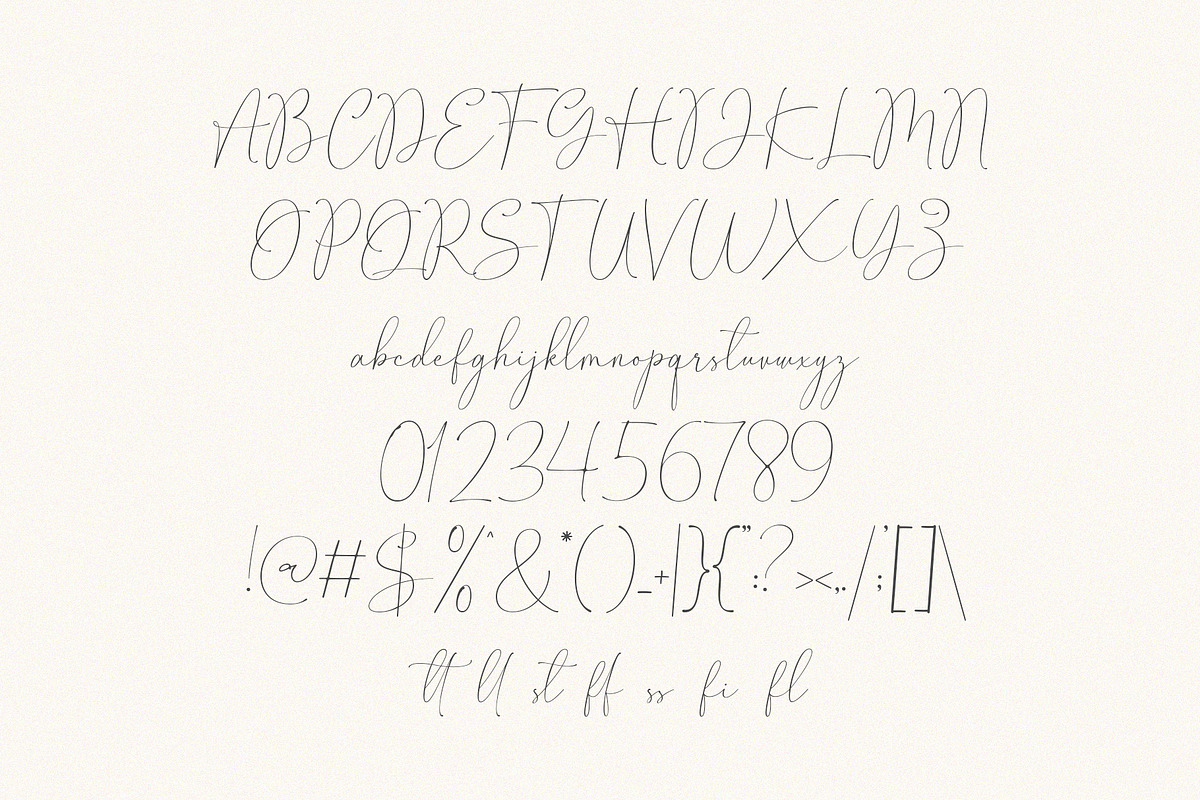 ABCDEFGHIJKLMN
OPQRSTUVWXYZ
abcdefghijklmnopqrstuvwxyz
0123456789
!@#$%^&*()_+|}{":?><,./;'[]\
tt ll st ff ss fi fl